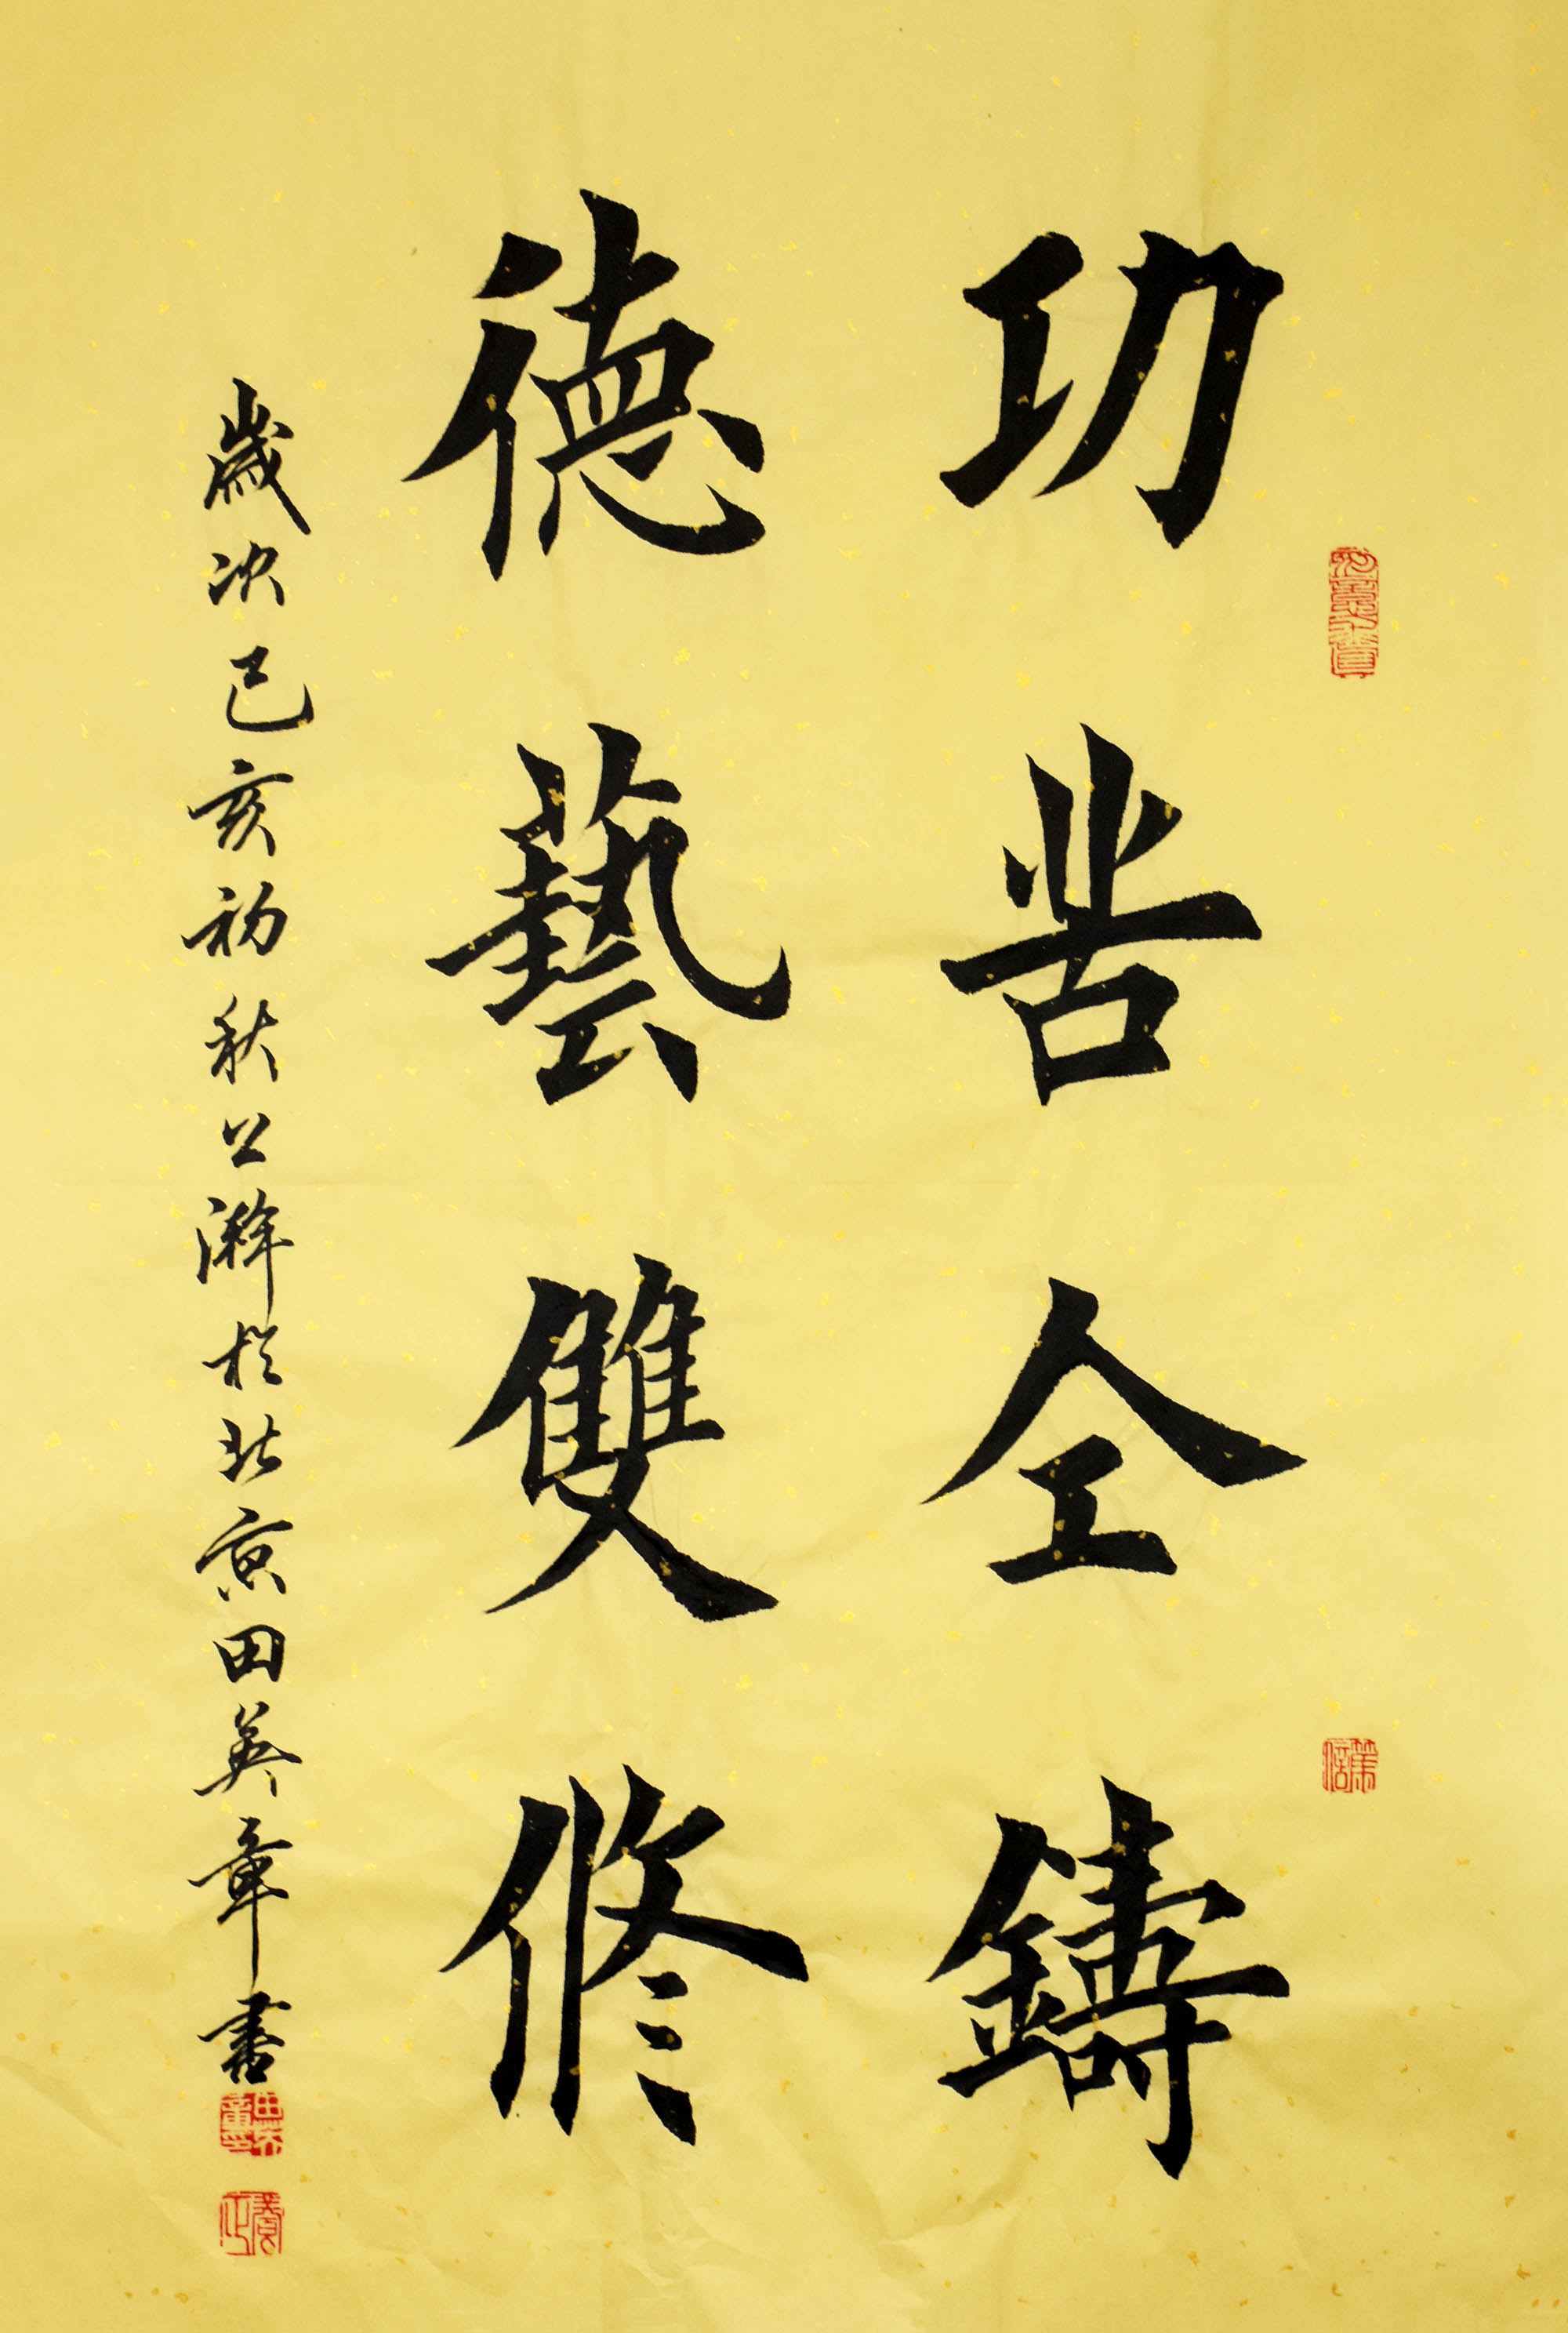 功苦仝鑄
德藝雙修
歲次己亥初秋上澣於北京田英章書